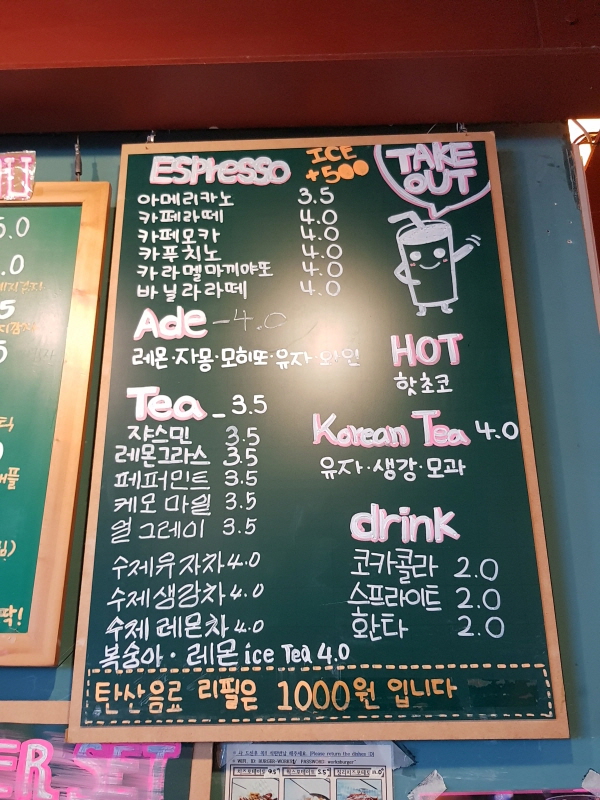 ESPresso ICE +500
TAKE OUT
아메리카노 3.5
카페라떼 4.0
카페모카 4.0
카푸치노 4.0
카라멜마끼야또 4.0
바닐라라떼 4.0
Ade - 4.0
레몬·자몽·모히또·유자·와인
HOT
핫초코
Tea - 3.5
쟈스민 3.5
레몬그라스 3.5
페퍼민트 3.5
케모마일 3.5
얼그레이 3.5
수제유자차 4.0
수제생강차 4.0
수제레몬차 4.0
복숭아·레몬 ice Tea 4.0
Korean Tea 4.0
유자·생강·모과
drink
코카콜라 2.0
스프라이트 2.0
환타 2.0
탄산음료 리필은 1000원 입니다
ER SET
(Please return the dishes :D)